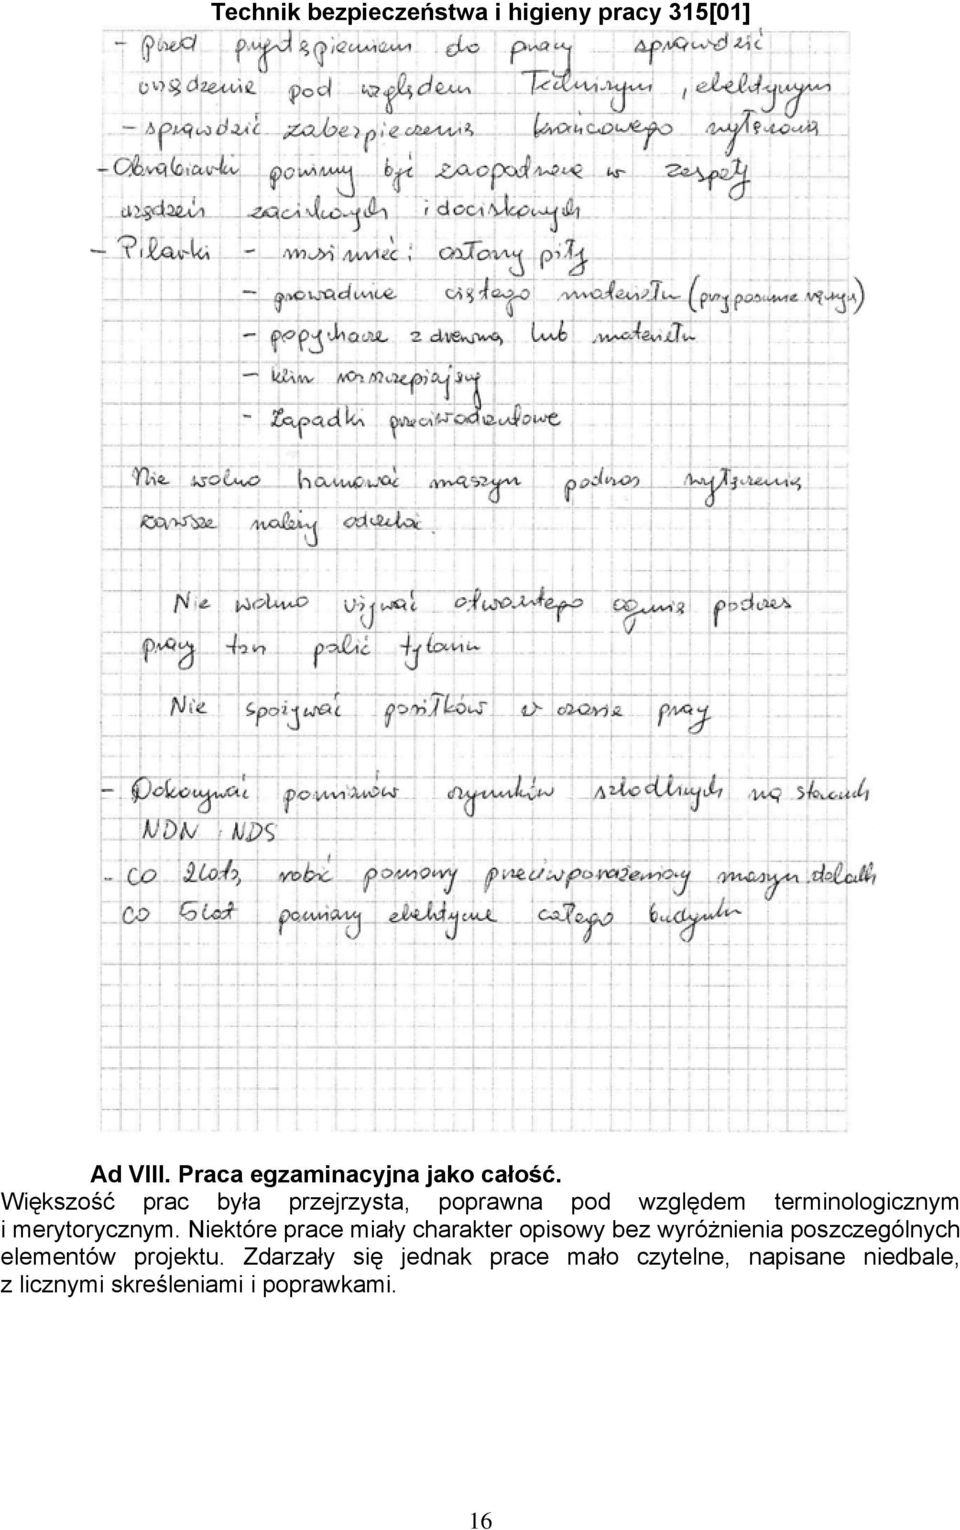 Technik bezpieczeństwa i higieny pracy 315[01]
- przed przystąpieniem do pracy sprawdzić
urządzenie pod względem Technicznym, elektycznym
- sprawdzić zabezpieczenia krańcowego wyłączenia
- Obrabiarki powinny być zaopadrzone w zespoły
urządzeń zaciskowych i dociskowych
- Pilarki - musi mieć i osłony piły
- prowadnice ciętego materiału (przy posuwie ręcznym)
- popychacze z drewna lub materiału
- klin rozszczepiający
- Zapadki przeciwodrzutowe
Nie wolno hamować maszyn podczas wyłączenia
zawsze należy odczekać.
Nie wolno używać otwartego ognia podczas
pracy tzn palić tytoniu
Nie spożywać posiłków w czasie pracy
- Dokonywać pomiarów czynników szkodliwych na stanowiskach
NDN i NDS
- co 2 lata robić pomiary przeciwporażeniowy maszyn
co 5 lat pomiary elektryczne całego budynku
Ad VIII. Praca egzaminacyjna jako całość.
Większość prac była przejrzysta, poprawna pod względem terminologicznym
i merytorycznym. Niektóre prace miały charakter opisowy bez wyróżnienia poszczególnych
elementów projektu. Zdarzały się jednak prace mało czytelne, napisane niedbale,
z licznymi skreśleniami i poprawkami.
16